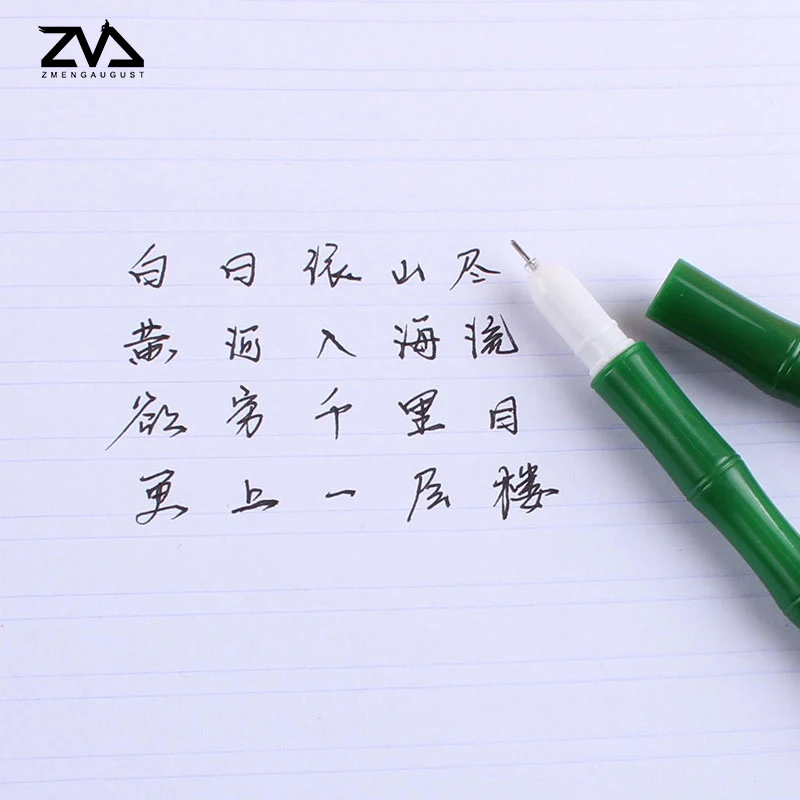 ZMENGAUGUST
白日依山尽
黄河入海流
欲穷千里目
更上一层楼